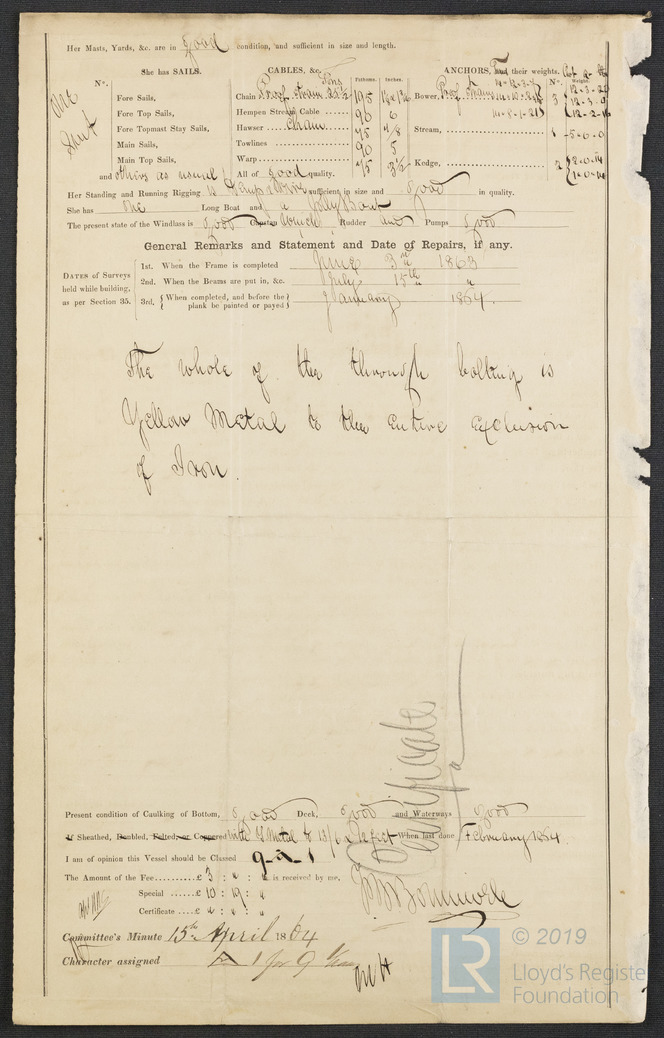 Her Masts, Yards, &c. are in good condition, and sufficient in size and length.
She has SAILS.
CABLES, &c.
Tons
Fathoms.
Inches.
ANCHORS, and their weights.
Nº.
Weight.
Nº.
One
Suit
Fore Sails,
Fore Top Sails,
Fore Topmast Stay Sails,
Main Sails,
Main Top Sails,
and others as usual
Chain Proof
195
Hempen Stream Cable
90
6
Hawser Chain
75
Towlines
90
5
Warp
75
3½
All of good quality.
Bower, Proof
3
12-3-0
12-2-16
Stream,
1
5-0-0
Kedge,
2
2-0-14
1-0-14
Her Standing and Running Rigging is Hemp & Wire sufficient in size and good in quality.
She has one Long Boat and a Jolly Boat
The present state of the Windlass is good Capstan Winch Rudder and Pumps good
General Remarks and Statement and Date of Repairs, if any.
DATES of Surveys
held while building,
as per Section 35.
1st. When the Frame is completed June 3rd 1863
2nd. When the Beams are put in, &c. July 15th "
3rd. When completed, and before the plank be painted or payed January 1864.
The whole of the through bolting is
Yellow Metal to the Entire Exclusion
of Iron.
Certificate
Present condition of Caulking of Bottom, good Deck, good and Waterways good
If Sheathed, Doubled, Felted, or Coppered with Y Metal to 13/6 & 12 feet When last done February 1864.
I am of opinion this Vessel should be Classed 9 A 1
The Amount of the Fee £ 3 : " : " is received by me,
Special £ 10 : 19 : "
Certificate £ " : " : "
Committee's Minute 15th April 1864
Character assigned A 1 for 9 Years
LR
© 2019
Lloyd's Registe
Foundation